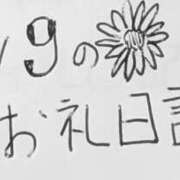 /9の
お礼日記